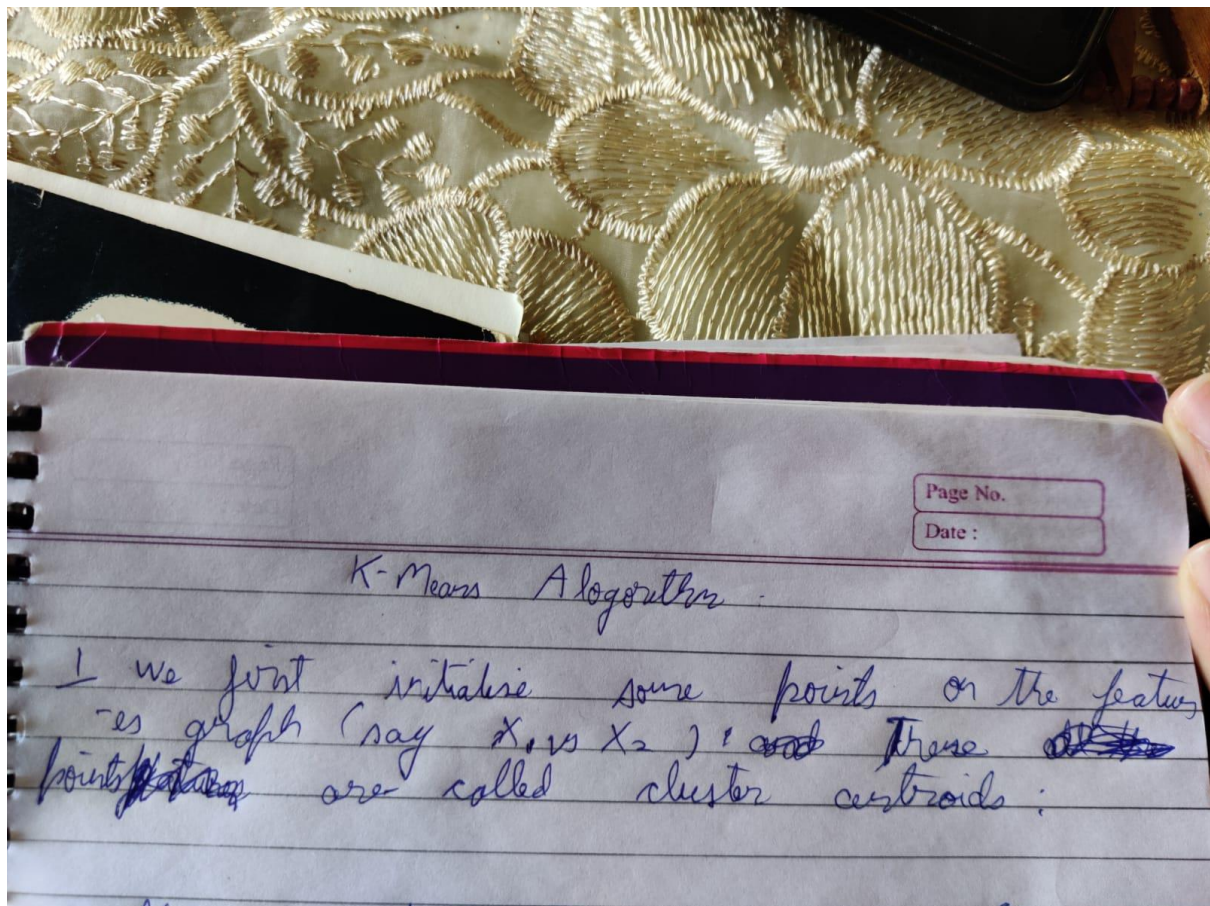 Page No.
Date :
K-Means Alogorithm.
1 We first initialise some points on the featur
-es graph (say X1 vs X2) : These
points are called cluster centroids :